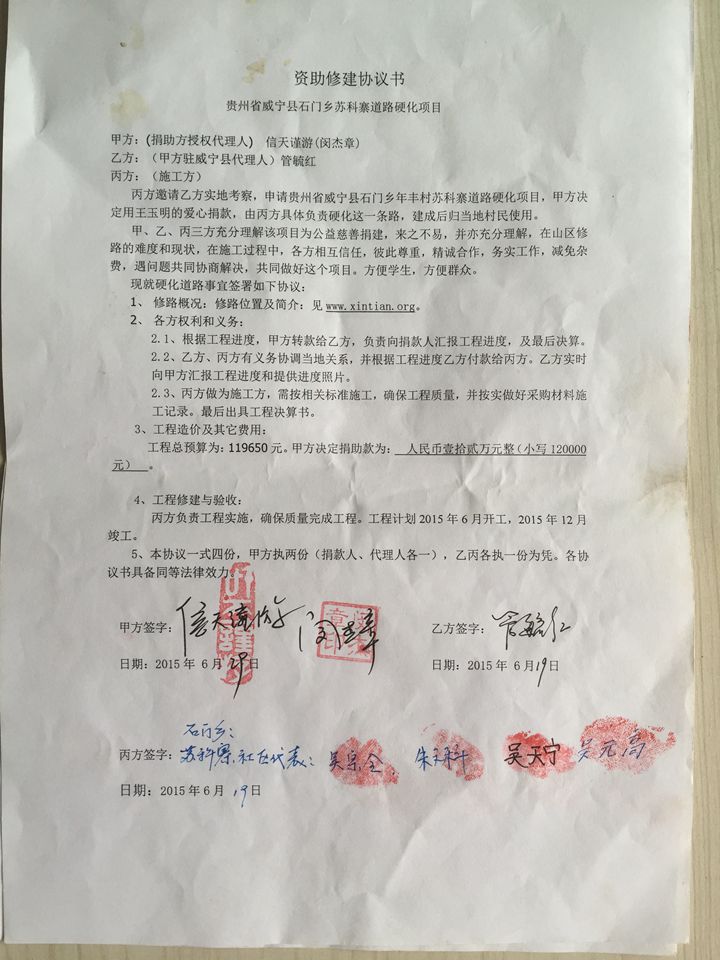 资助修建协议书
贵州省威宁县石门乡苏科寨道路硬化项目
甲方：(捐助方授权代理人) 信天谨游(闵杰章)
乙方：（甲方驻威宁县代理人）管毓红
丙方：（施工方）
丙方邀请乙方实地考察，申请贵州省威宁县石门乡年丰村苏科寨道路硬化项目，甲方决
定用王玉明的爱心捐款，由丙方具体负责硬化这一条路，建成后归当地村民使用。
甲、乙、丙三方充分理解该项目为公益慈善捐建，来之不易，并亦充分理解，在山区修
路的难度和现状，在施工过程中，各方相互信任，彼此尊重，精诚合作，务实工作，减免杂
费，遇问题共同协商解决，共同做好这个项目。方便学生，方便群众。
现就硬化道路事宜签署如下协议：
1、 修路概况：修路位置及简介：见 www.xintian.org。
2、 各方权利和义务：
2.1、根据工程进度，甲方转款给乙方，负责向捐款人汇报工程进度，及最后决算。
2.2、乙方、丙方有义务协调当地关系，并根据工程进度乙方付款给丙方。乙方实时
向甲方汇报工程进度和提供进度照片。
2.3、丙方做为施工方，需按相关标准施工，确保工程质量，并按实做好采购材料施
工记录。最后出具工程决算书。
3、工程造价及其它费用：
工程总预算为：119650 元。甲方决定捐助款为： 人民币壹拾贰万元整（小写 120000
元） 。
4、工程修建与验收：
丙方负责工程实施，确保质量完成工程。工程计划 2015 年 6 月开工，2015 年 12 月
竣工。
5、本协议一式四份，甲方执两份（捐款人、代理人各一），乙丙各执一份为凭。各协
议书具备同等法律效力。
甲方签字：信天谨游 闵杰章 乙方签字：管毓红
日期：2015 年 6 月 19 日 日期：2015 年 6 月 19 日
石门乡：
丙方签字：苏科寨社区代表：吴宗全、 吴天宁 吴元高
日期：2015 年 6 月 19 日